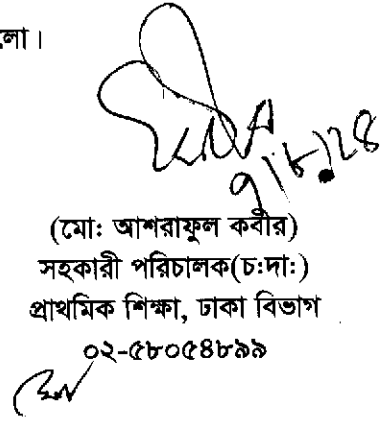 লো।
৭|৮|২৪
(মো: আশরাফুল কবীর)
সহকারী পরিচালক(চ:দা:)
প্রাথমিক শিক্ষা, ঢাকা বিভাগ
০২-৫৮০৫৪৮৯৯